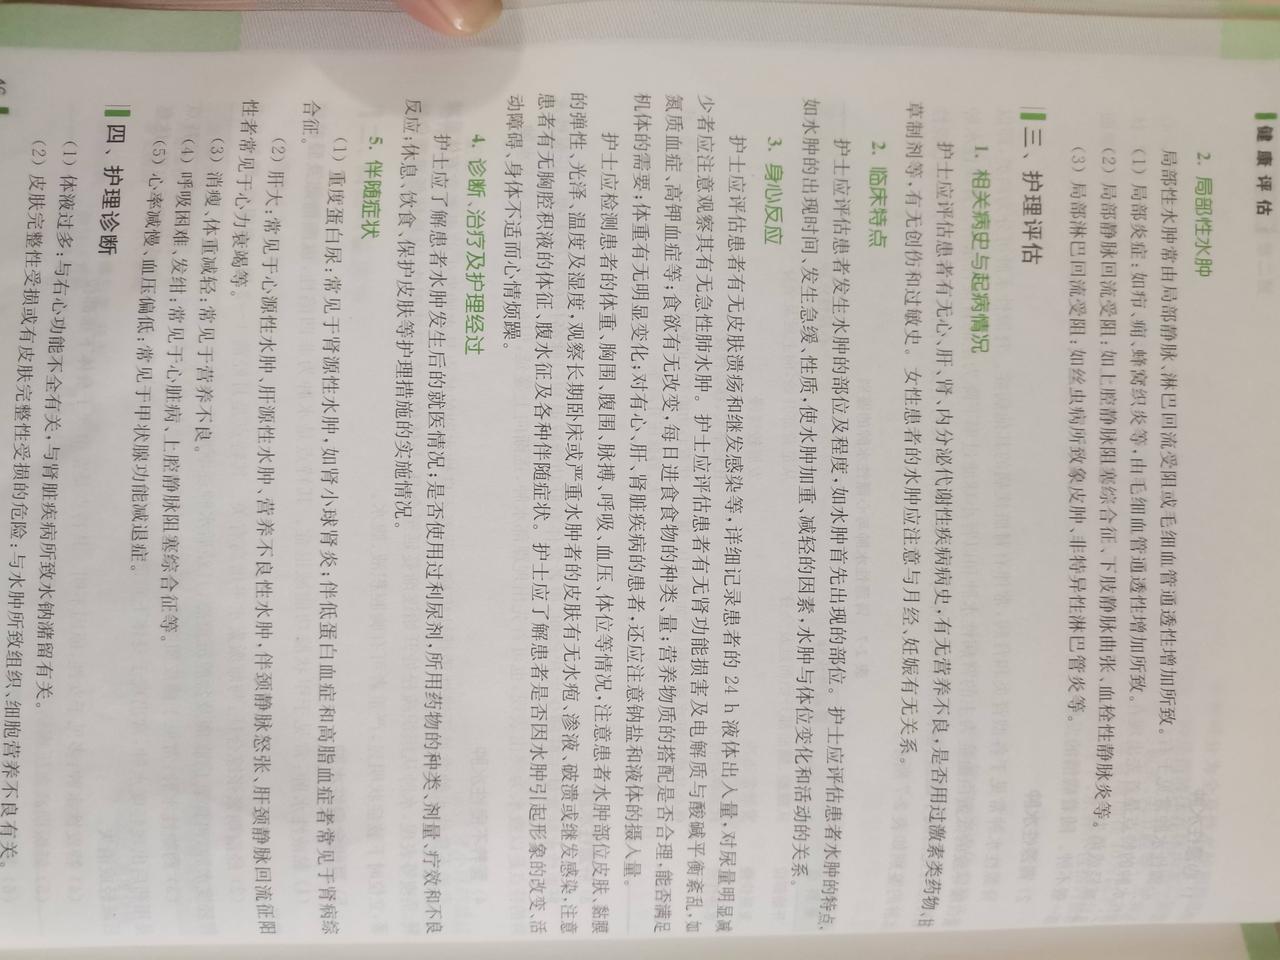 健康评估
2. 局部性水肿
局部性水肿常由局部静脉、淋巴回流受阻或毛细血管通透性增加所致。
（1）局部炎症：如疖、痈、蜂窝织炎等，由毛细血管通透性增加所致。
（2）局部静脉回流受阻：如上腔静脉阻塞综合征、下肢静脉曲张、血栓性静脉炎等。
（3）局部淋巴回流受阻：如丝虫病所致象皮肿、非特异性淋巴管炎等。
三、护理评估
1. 相关病史与起病情况
护士应评估患者有无心、肝、肾、内分泌代谢性疾病病史，有无营养不良，是否用过激素类药物、甘
草制剂等，有无创伤和过敏史。女性患者的水肿应注意与月经、妊娠有无关系。
2. 临床特点
护士应评估患者发生水肿的部位及程度，如水肿首先出现的部位。护士应评估患者水肿的特点，
如水肿的出现时间、发生急缓、性质，使水肿加重、减轻的因素，水肿与体位变化和活动的关系。
3. 身心反应
护士应评估患者有无皮肤溃疡和继发感染等，详细记录患者的 24 h 液体出入量，对尿量明显减
少者应注意观察其有无急性肺水肿。护士应评估患者有无肾功能损害及电解质与酸碱平衡紊乱，如
氮质血症、高钾血症等；食欲有无改变，每日进食食物的种类、量；营养物质的搭配是否合理，能否满足
机体的需要；体重有无明显变化；对有心、肝、肾脏疾病的患者，还应注意钠盐和液体的摄入量。
护士应检测患者的体重、胸围、腹围、脉搏、呼吸、血压、体位等情况，注意患者水肿部位皮肤、黏膜
的弹性、光泽、温度及湿度，观察长期卧床或严重水肿者的皮肤有无水疱、渗液、破溃或继发感染，注意
患者有无胸腔积液的体征、腹水征及各种伴随症状。护士应了解患者是否因水肿引起形象的改变、活
动障碍、身体不适而心情烦躁。
4. 诊断 治疗及护理经过
护士应了解患者水肿发生后的就医情况；是否使用过利尿剂，所用药物的种类、剂量、疗效和不良
反应；休息、饮食、保护皮肤等护理措施的实施情况。
5. 伴随症状
（1）重度蛋白尿：常见于肾源性水肿，如肾小球肾炎；伴低蛋白血症和高脂血症者常见于肾病综
合征。
（2）肝大：常见于心源性水肿、肝源性水肿、营养不良性水肿，伴颈静脉怒张、肝颈静脉回流征阳
性者常见于心力衰竭等。
（3）消瘦、体重减轻：常见于营养不良。
（4）呼吸困难、发绀：常见于心脏病、上腔静脉阻塞综合征等。
（5）心率减慢、血压偏低：常见于甲状腺功能减退症。
四、护理诊断
（1）体液过多：与右心功能不全有关，与肾脏疾病所致水钠潴留有关。
（2）皮肤完整性受损或有皮肤完整性受损的危险：与水肿所致组织、细胞营养不良有关。